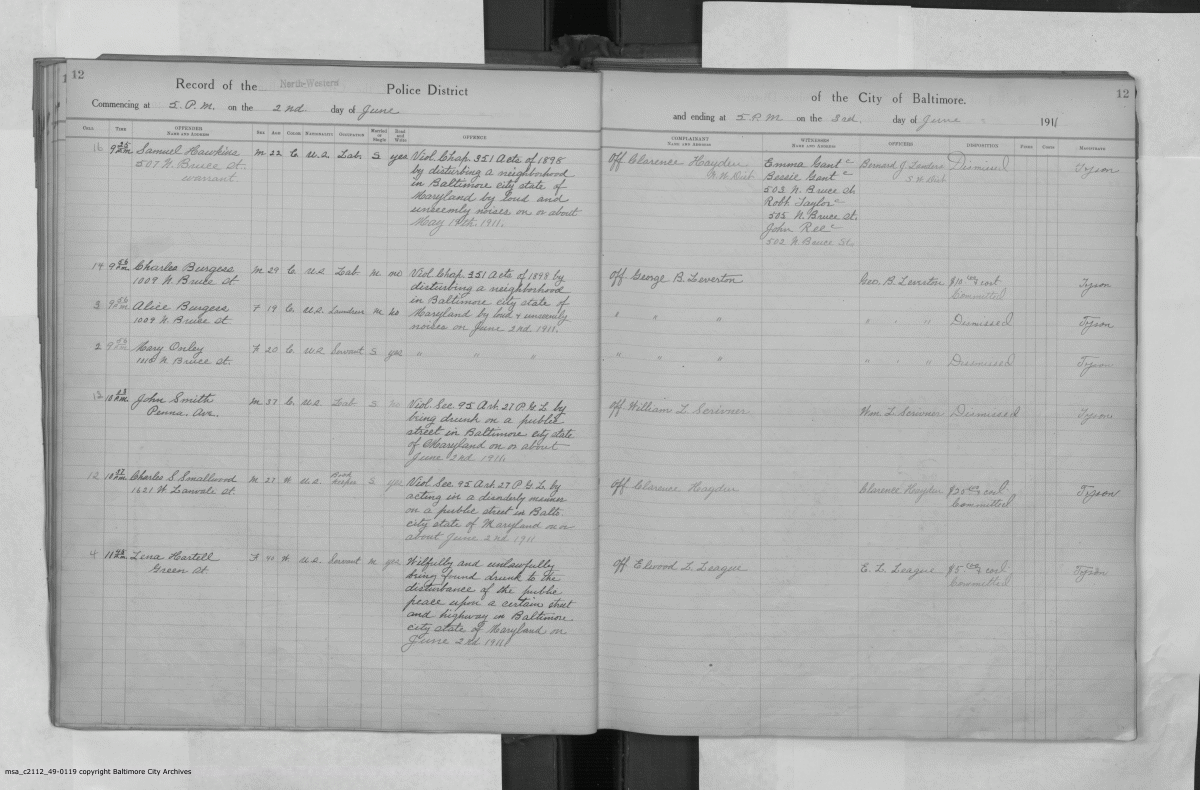 12
Record of the North-Western Police District
Commencing at 5 P.M. on the 2nd day of June
CELL TIME OFFENDER NAME AND ADDRESS SEX AGE COLOR NATIONALITY OCCUPATION Married or Single Read and Write OFFENCE
16 9 25 P.M. Samuel Hawkins M 22 C. U.S. Lab. S yes Viol. Chap. 351 Acts of 1898
507 N. Bruce St. by disturbing a neighborhood
warrant in Baltimore city state of
Maryland by loud and
unseemly noises on or about
May 19th. 1911.
14 9 55 P.M. Charles Burgess M 29 C. U.S Lab M no Viol. Chap. 351 Acts of 1898 by
1009 N. Bruce St disturbing a neighborhood
in Baltimore city state of
3 9 56 P.M. Alice Burgess F 19 C. U.S. Laundress M no Maryland by loud & unseemly
1009 N. Bruce St noises on June 2nd 1911.
2 9 P.M. Mary Onley F 20 C. U.S Servant S yes " " "
N. Bruce St.
13 10 P.M. John Smith M 37 C. U.S. Lab S no Viol. Sec 95 Art. 27 P.G.L. by
Penna. Ave. being drunk on a public
street in Baltimore city state
of Maryland on or about
June 2nd 1911.
12 10 P.M. Charles S Smallwood M 27 W. U.S. Book keeper S yes Viol. Sec 95 Art. 27 P.G.L. by
1621 W. Lanvale St. acting in a disorderly manner
on a public street in Balto.
city state of Maryland on or
about June 2nd 1911
4 11 P.M. Lena Hartell F 40 W. U.S. Servant M yes Wilfully and unlawfully
Green St. being found drunk to the
disturbance of the public
peace upon a certain street
and highway in Baltimore
city state of Maryland on
June 2nd 1911
12
of the City of Baltimore.
and ending at 5 P.M on the 3rd. day of June 1911
COMPLAINANT NAME AND ADDRESS WITNESSES NAME AND ADDRESS OFFICERS DISPOSITION Fines Costs MAGISTRATE
Off Clarence Hayden Emma Gant c Bernard J. Dismissed Tyson
N.W. Dist. Bessie Gant c Dist.
503 N. Bruce St.
Robt. Taylor c
505 N. Bruce St.
John Ree c
502 N. Bruce St.
Off George B. Leverton Geo. B. Leverton $10 & cost Tyson
Committed
" " " " " " Dismissed Tyson
" " " " " " Dismissed Tyson
Off William L Scrivner Wm L Scrivner Dismissed Tyson
Off Clarence Hayden Clarence Hayden $25 & cost Tyson
Committed
Off Elwood L. League E. L. League $5 & cost Tyson
Committed
msa_c2112_49-0119 copyright Baltimore City Archives